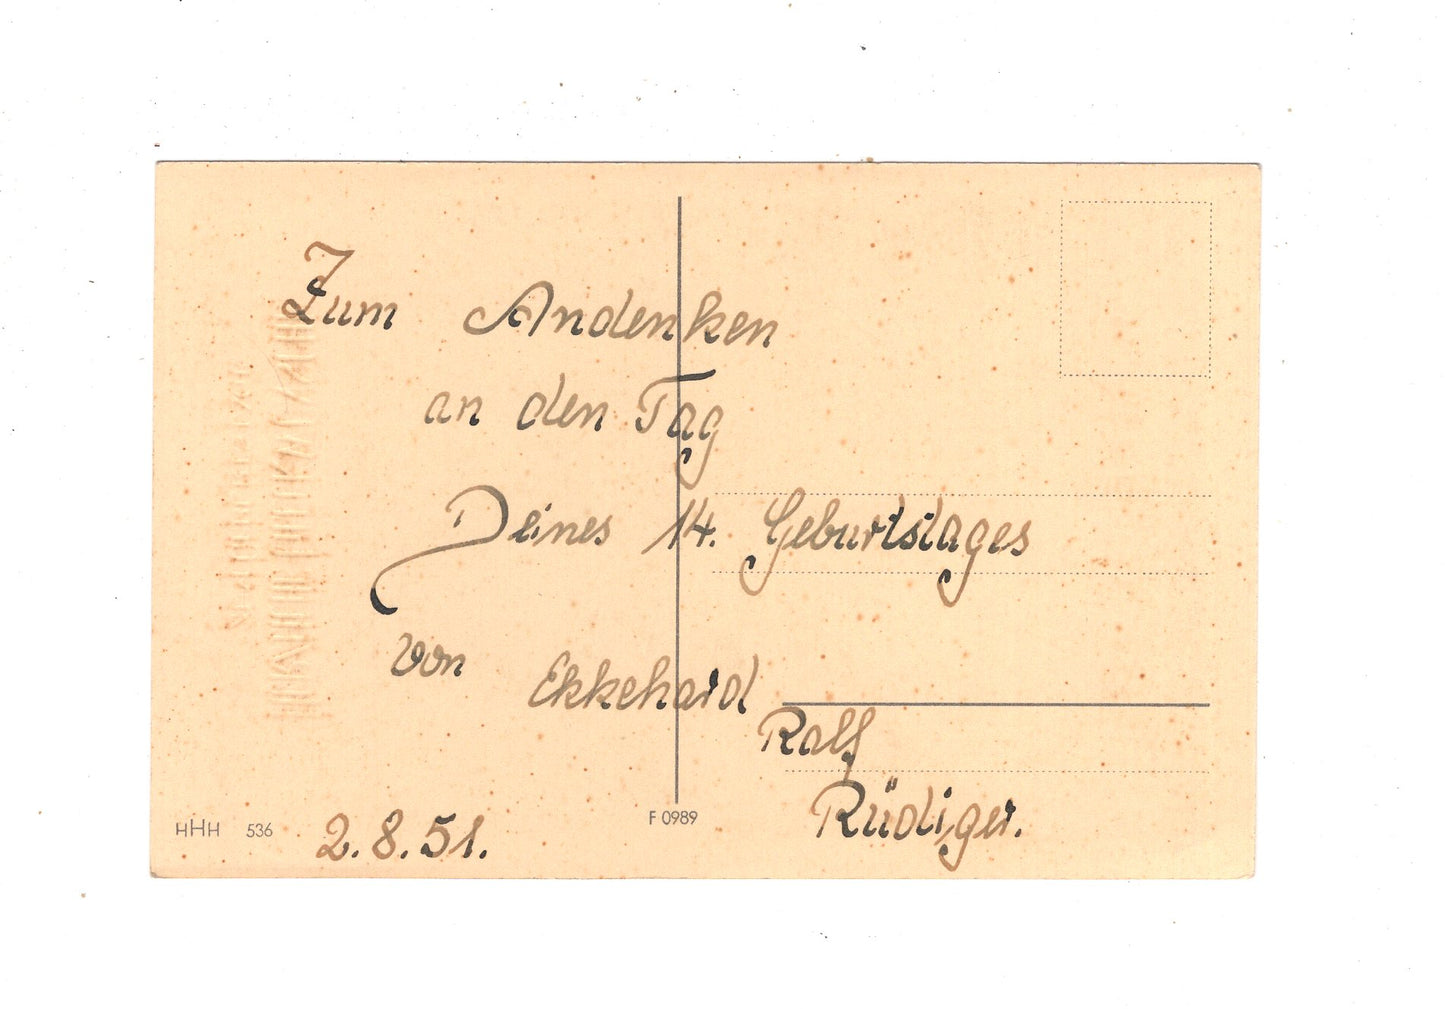 Zum Andenken
an den Tag
Deines 14. Geburtstages
von Ekkehard
Ralf
Rüdiger.
2.8.51.
HHH 536
F 0989